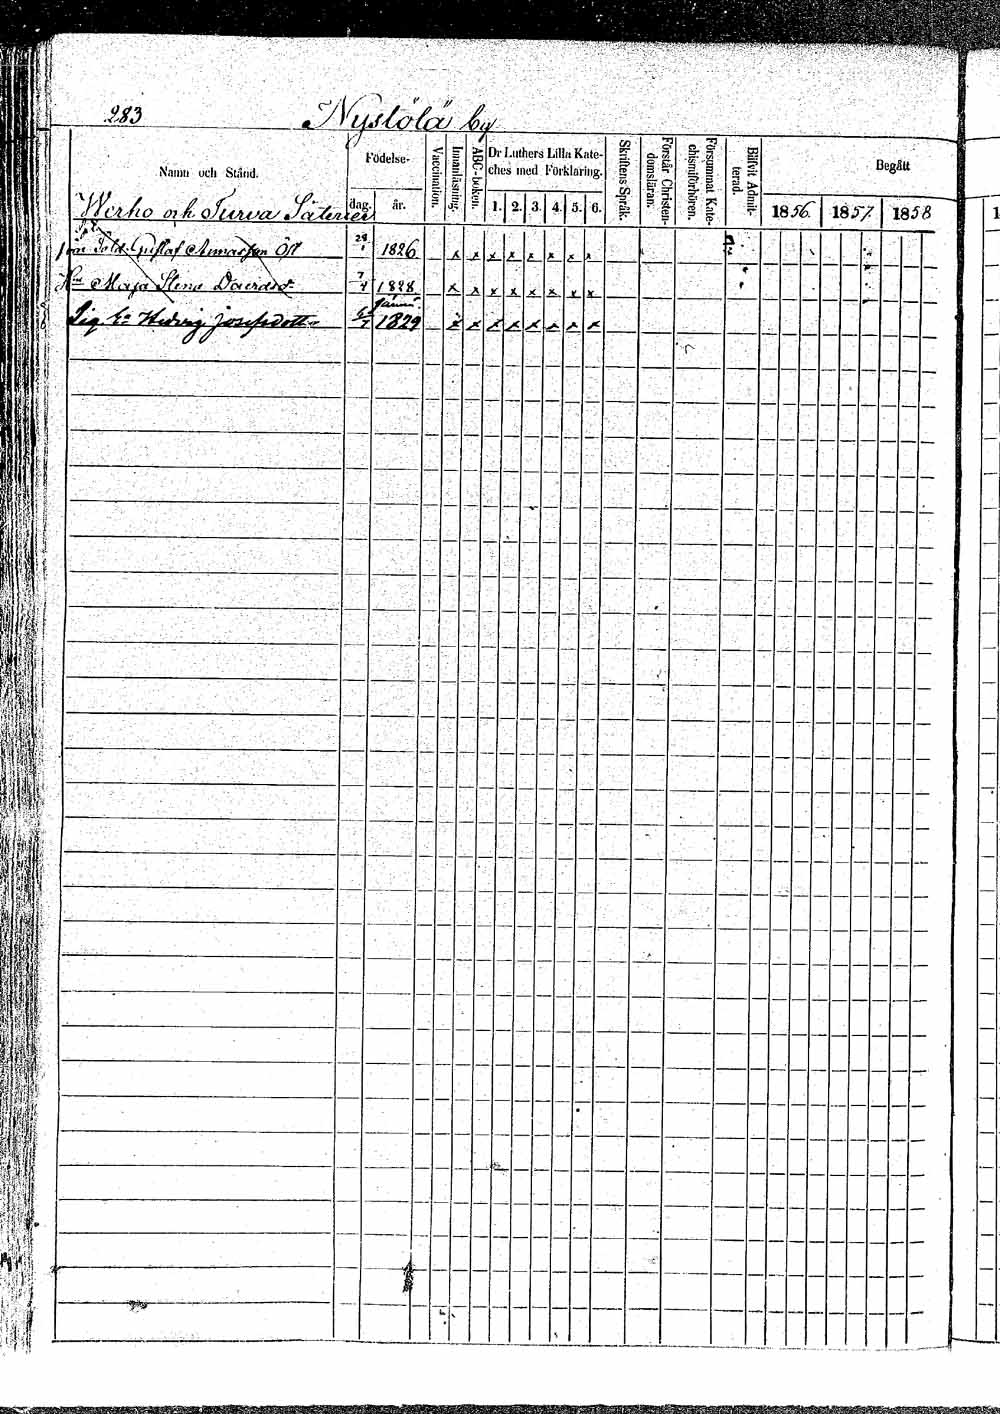 283 Nystölä by
Namn och Stånd.
Födelse-
dag.
år.
Vaccination.
Innanläsning.
ABC-boken.
Dr Luthers Lilla Kate-
ches med Förklaring.
1. 2. 3. 4. 5. 6.
Skriftens Språk.
Förstår Christen-
domsläran.
Försummat Kate-
chismiförhören.
Blifvit Admit-
terad.
Begått
1856. 1857. 1858
Werho och Turva Säterier
Sold. Gustaf Annasson Öst 1826 x x x x x x x x
Maja Stena Davidsd. 7/4 1828 x x x x x x x x
Pig. Hedvig Josefsdott. 1829 x x x x x x x x